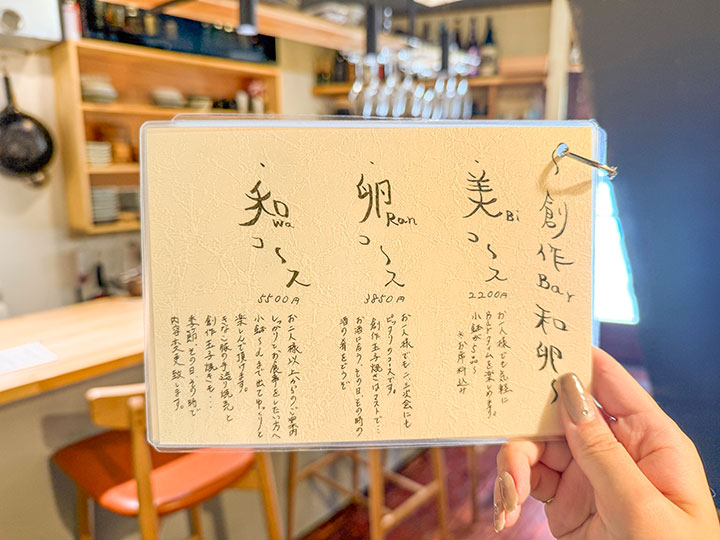 〜創作Bar和卵〜
・美Biコース
2200円
お一人様でも気軽に
BARタイムを楽しめます。
小鉢が5つ〜
※お席料込み
・卵Ranコース
3850円
お一人様でも、二次会にも
ピッタリのコースです。
創作玉子焼きはマストで…
お酒に合う、その日、その時の
酒の肴をどうぞ
・和Waコース
5500円
お二人様以上からのご案内
しっかりとお食事をしたい方へ
小鉢〜〆まで出てゆっくりと
楽しんで頂けます。
きなこ豚の手造り焼売と
創作玉子焼きと…
季節、その日、その時で
内容変更致します。